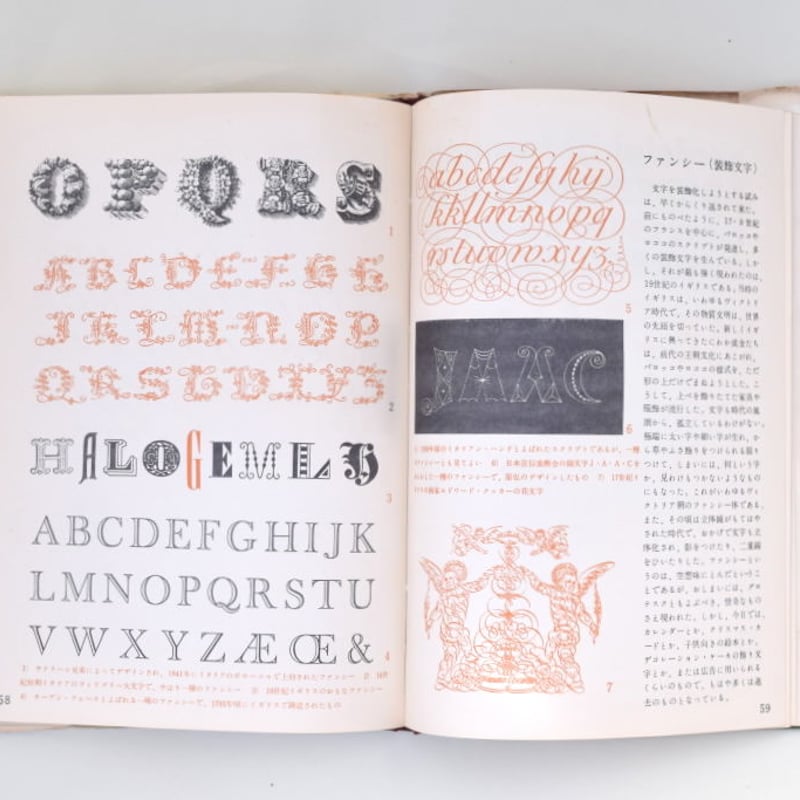 OPQRS
1
ABCDEFGH
IKLMNOP
QRSTUVWXYZ
2
HALOGEMLH
3
ABCDEFGHIJK
LMNOPQRSTU
VWXYZÆŒ&
4
58
abcdefghij
kkllmnopq
rstuvwxyz.
5
JAAC
6
7
ファンシー(装飾文字)
文字を装飾化しようとする試み
は、早くからくり返されて来た。
前にものべたように、17・8世紀
のフランスを中心に、バロックや
ロココのスクリプトが発達し、多
くの装飾文字を生んでいる。しか
し、それが最も強く現われたのは、
19世紀のイギリスである。当時の
イギリスは、いわゆるヴィクトリ
ア時代で、その物質文明は、世界
の先頭を切っていた。新しくイギ
リスに興ってきたにわか成金たち
は、前代の王朝文化にあこがれ、
バロックやロココの様式を、ただ
形の上だけでまねようとした。こ
うして、上べを飾りたてた家具や
服飾が流行した。文字も時代の風
潮から、孤立しているわけがない。
極端に太い字や細い字が生れ、か
ら草やよさ飾りをつけられる限り
つけて、しまいには、何という字
か、見わけもつかないようなもの
にもなった。これがいわゆるヴィ
クトリア朝のファンシー体である。
また、その頃は立体鏡がもてはや
された時代で、おかげで文字も立
体化され、影をつけたり、二重線
をひいたりした。ファンシーとい
うのは、空想味にとんだというこ
とであるが、おしまいには、グロ
テスクともよぶべき、怪奇なもの
さえ現われた。しかし、今日では、
カレンダーとか、クリスマス・カ
ードとか、子供向きの絵本とか、
デコレーション・ケーキの飾り文
字とか、または広告に用いられる
くらいのもので、もはや多くは過
去のものとなっている。
59